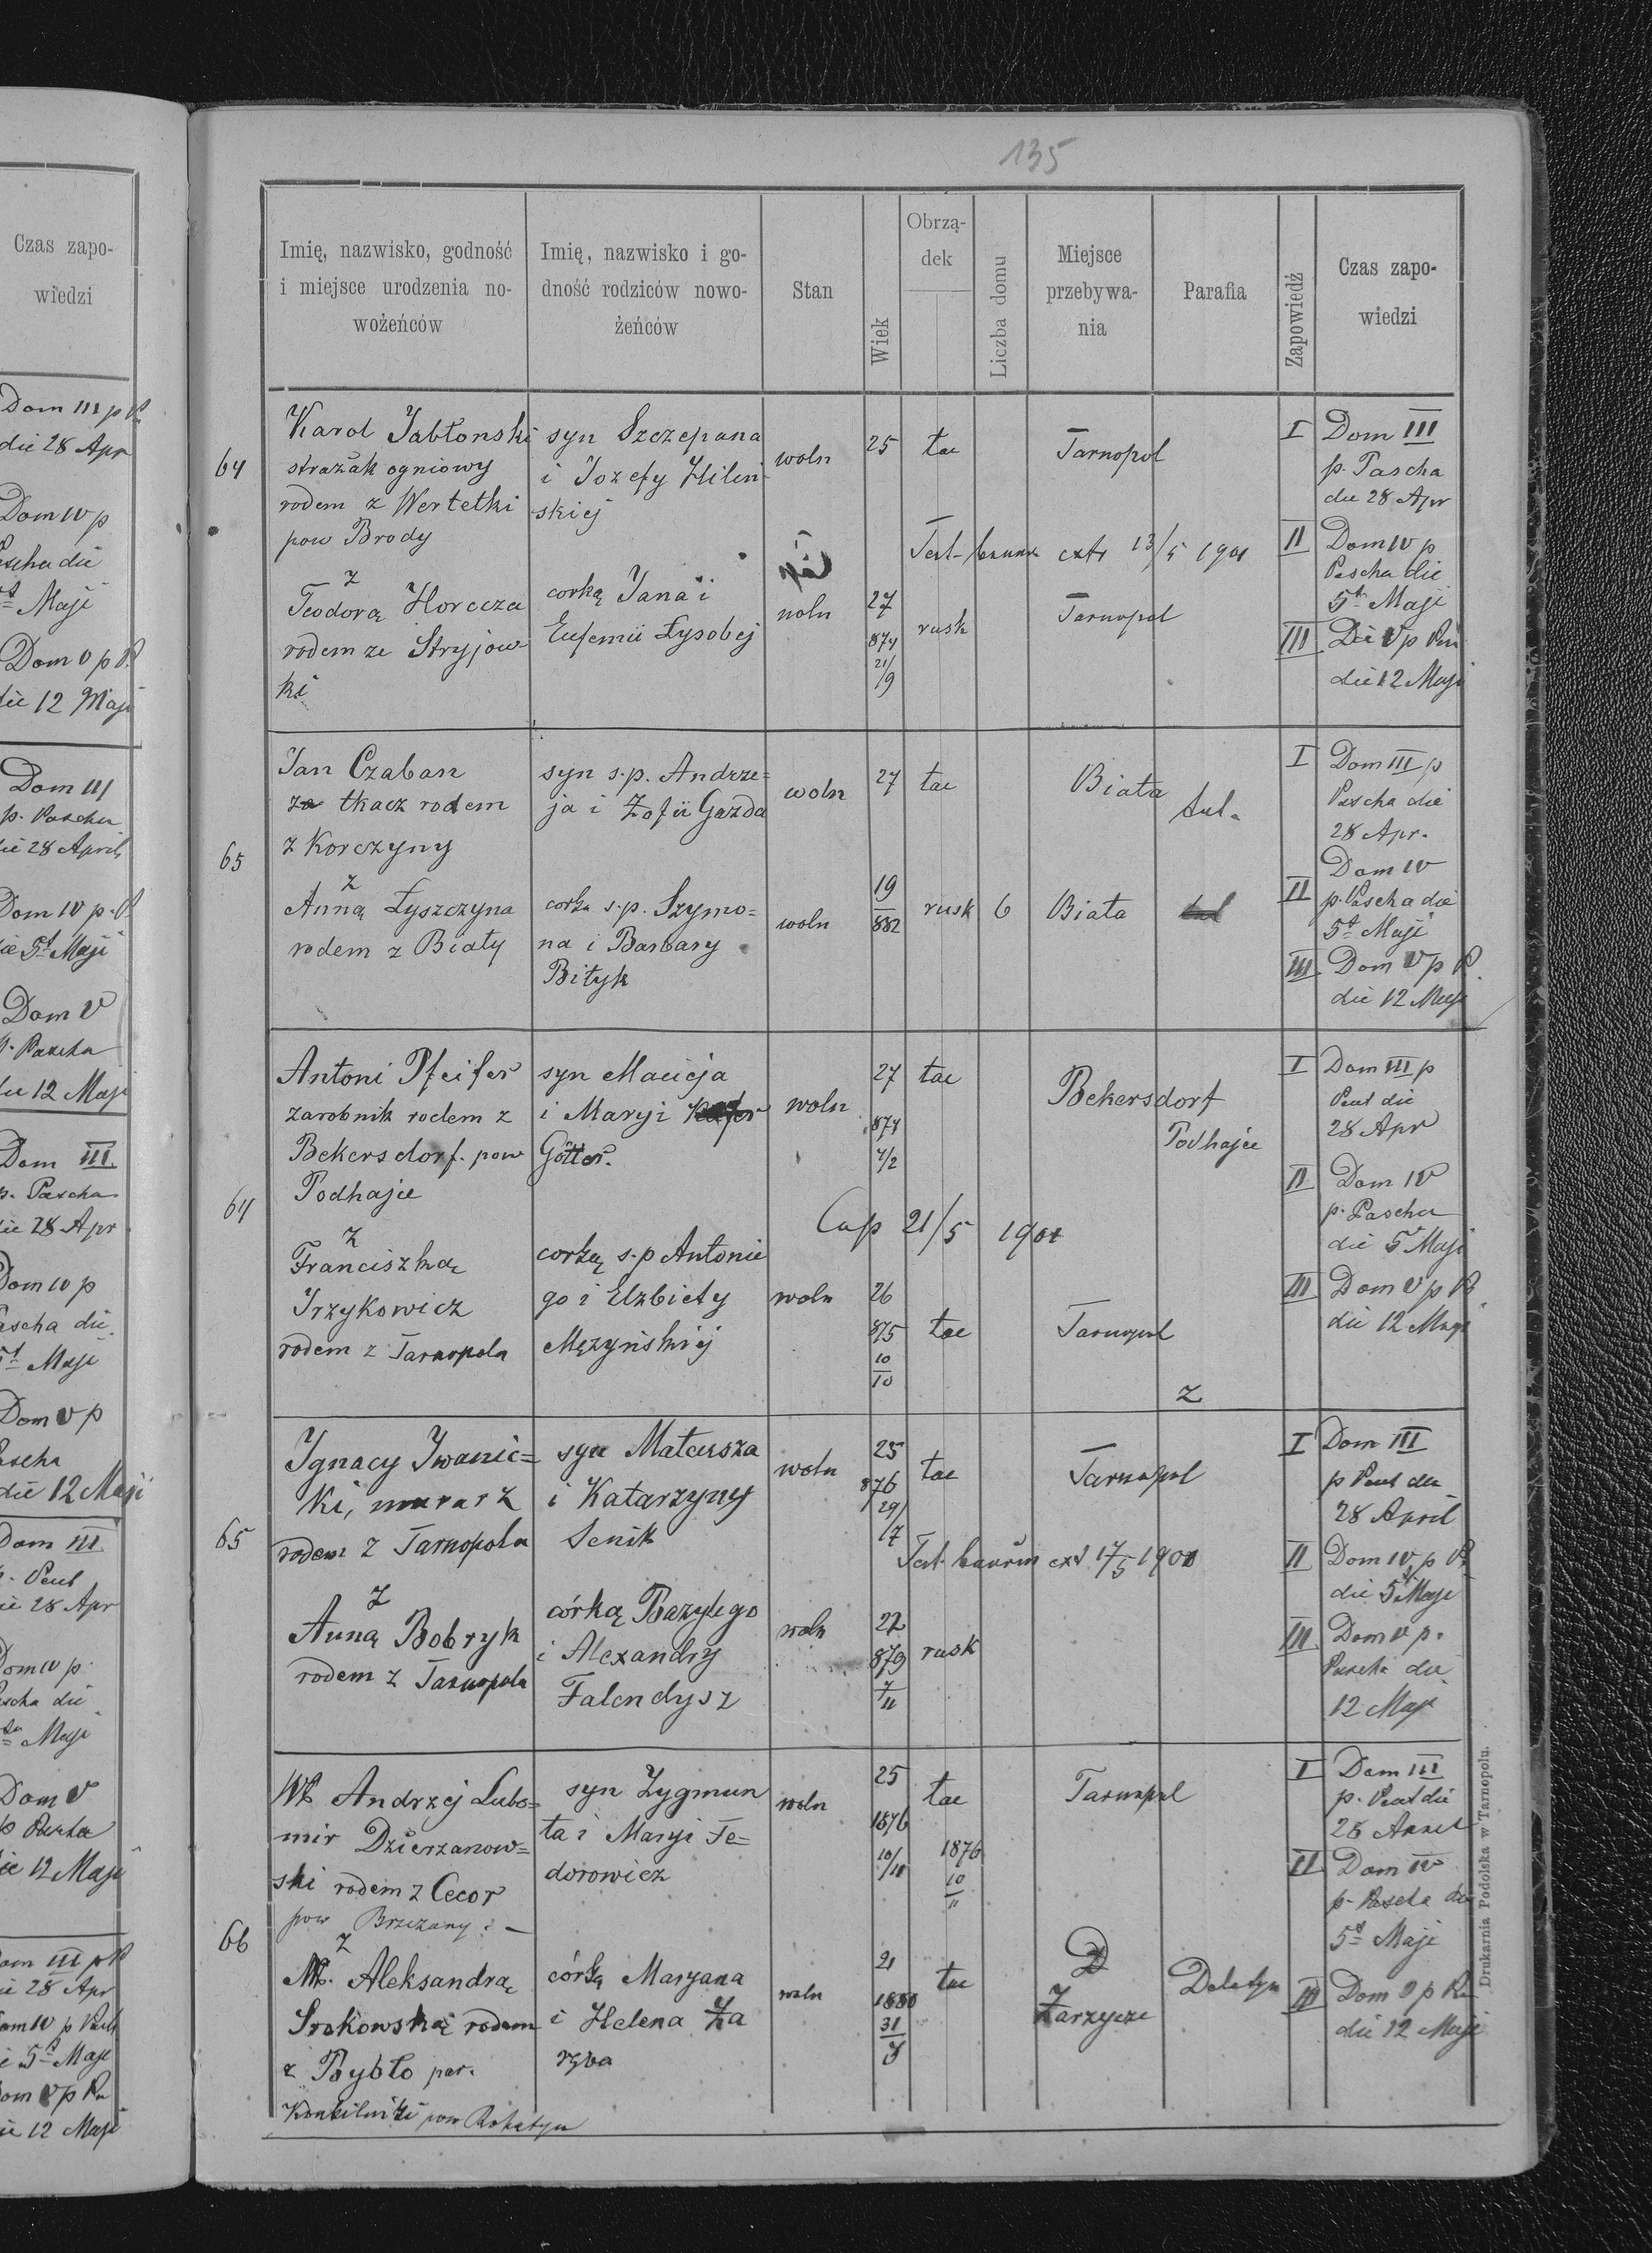 135
Czas zapo-
wiedzi
Dom III p P.
die 28 Apr
Dom IV p
Pascha die
Maji
Dom V p P.
die 12 Maji
Dom III
p. Pascha
die 28 April
Dom IV p. P.
die 5t Maji
Dom V
p. Pascha
die 12 Maji
Dom III
p. Pascha
die 28 Apr
Dom IV p
Pascha die
5t Maji
Dom V p
Pascha
die 12 Maji
Dom III
die 28 Apr
Dom IV p.
Pascha die
Maji
Dom V
p Pascha
die 12 Maji
Dom III p P
die 28 Apr
Dom IV p
die 5t Maji
Dom V p
die 12 Maji
Imię, nazwisko, godność
i miejsce urodzenia no-
wożeńców
Imię, nazwisko i go-
dność rodziców nowo-
żeńców
Stan
Wiek
Obrzą-
dek
Liczba domu
Miejsce
przebywa-
nia
Parafia
Zapowiedź
Czas zapo-
wiedzi
64
Karol Jabłonski
strażak ogniowy
rodem z Wertelki
pow Brody
z
Teodorą Horecza
rodem ze Stryjow-
ki
syn Szczepana
i Jozefy Hilin-
skiej
corką Jana i
Eufemii Łysobej
woln
25
tac
Tarnopol
Test. extr 13/5 1901
woln
27
874
21/9
rusk
Tarnopol
I Dom III
p. Pascha
die 28 Apr
II Dom IV p
Pascha die
5t Maji
III
die 12 Maji
65
Jan Czaban
tkacz rodem
z Korczyny
z
Anną Łyszczyna
rodem z Biały
syn s.p. Andrze=
ja i Zofii Gazda
corka s.p. Szymo=
na i Barbary
Bityk
woln
27
tac
Biała
woln
19
882
rusk
6
Biała
I Dom III p
Pascha die
28 Apr.
Dom IV
II p. Pascha die
5t Maji
III Dom V p P.
die 12 Maji
64
Antoni Pfeifer
zarobnik rodem z
Bekersdorf. pow
Podhajce
z
Franciszką
Irzykowicz
rodem z Tarnopola
syn Macieja
i Maryi
Götter.
corką s.p Antonie
go i Elzbiety
Mężyńskiej
woln
27
874
4/2
tac
Bekersdorf
Podhajce
Cop 21/5 1901
woln
26
875
10
10
tac
Tarnopol
z
I Dom III p
die
28 Apr
II Dom IV
p. Pascha
die 5 Maji
III Dom V p P.
die 12 Maji
65
Ignacy Iwanic=
ki, murarz
rodem z Tarnopola
z
Anną Bobryk
rodem z Tarnopola
syn Mateusza
i Katarzyny
Senik
córką Bazylego
i Alexandry
Falendysz
woln
25
876
29/
17
tac
Tarnopol
Test. ext 17/5 1901
woln
22
879
7
11
rusk
I Dom III
28 April
II Dom IV p P.
die 5t Maji
III Dom V p.
Pascha die
12 Maji
66
Andrzej Lubo=
mir Dzierżanow=
ski rodem z Cecor
pow Brzeżany. —
z
Aleksandrą
Srokowską rodem
z Bybło par.
Konkilniki pow Rohatyn
syn Zygmun
ta i Maryi Fe=
dorowicz
córką Maryana
i Helena Za
ręba
woln
25
1876
10/11
tac
1876
10
11
Tarnopol
woln
21
1880
31
tac
D
Zarzycze
Delatyn
I Dom III
28 April
II Dom IV
p. Pascha die
5t Maji
III Dom V p
die 12 Maji
Drukarnia Podolska w Tarnopolu.